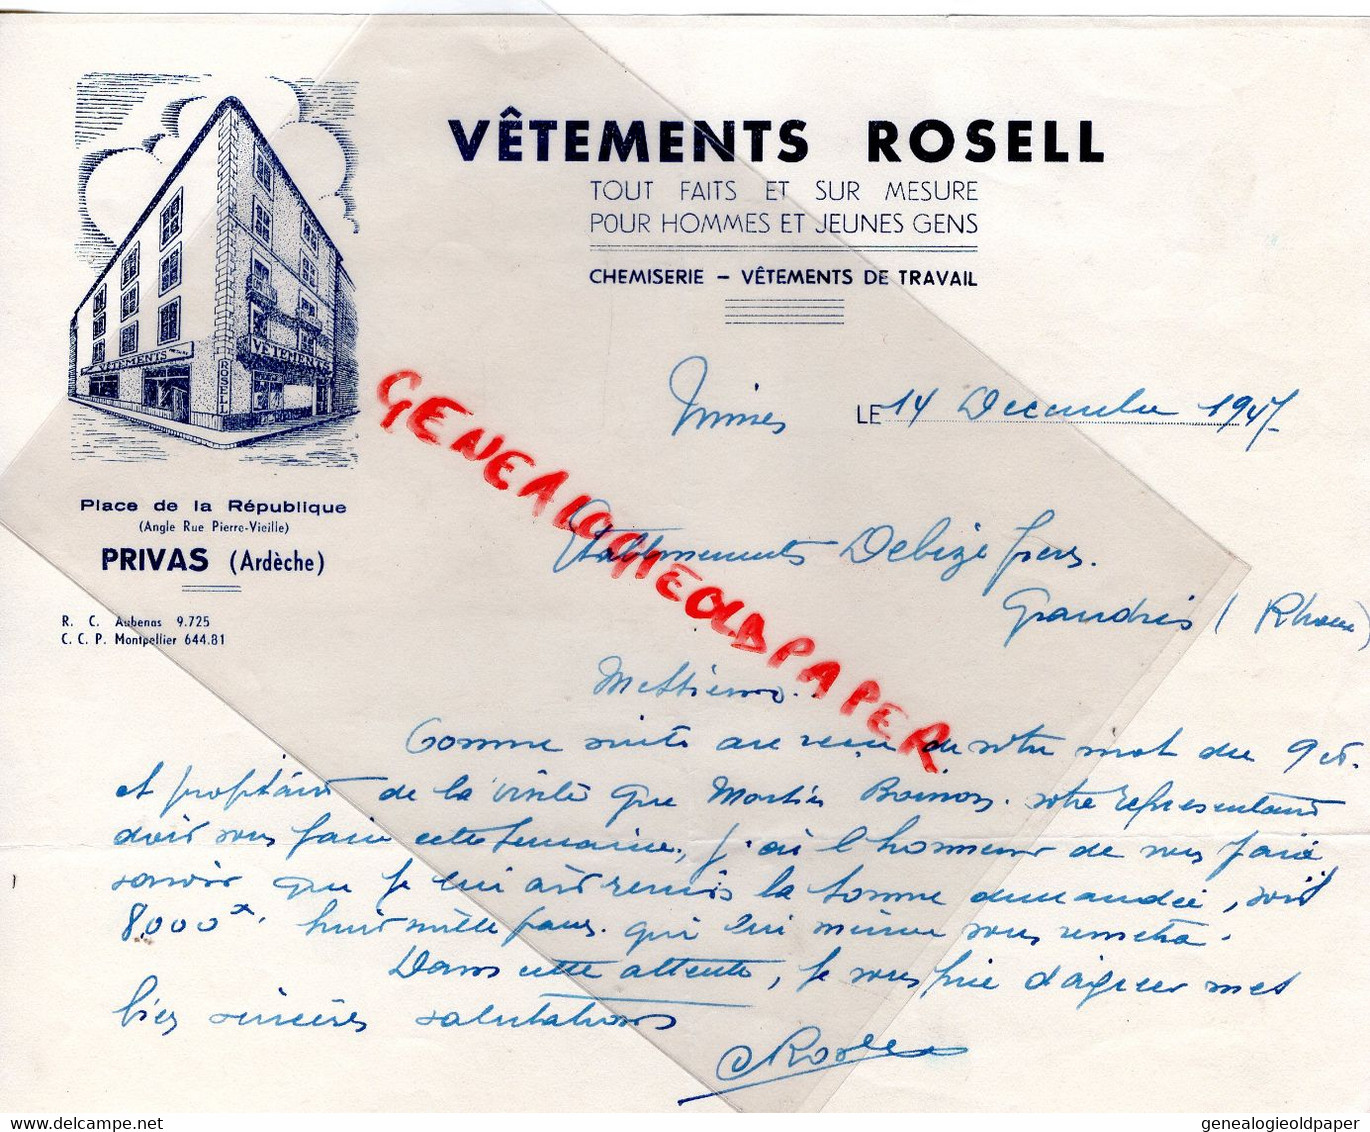 VÊTEMENTS ROSELL
TOUT FAITS ET SUR MESURE
POUR HOMMES ET JEUNES GENS
CHEMISERIE – VÊTEMENTS DE TRAVAIL
VÊTEMENTS
ROSELL
VÊTEMENTS
Place de la République
(Angle Rue Pierre-Vieille)
PRIVAS (Ardèche)
R. C. Aubenas 9.725
C. C. P. Montpellier 644.81
Nimes LE 14 Decembre 1947
Etablissements Debize freres.
Grandris (Rhone)
Messieurs.
Comme suite au reçu de votre mot du 9 ct.
et profitant de la visite que Monsieur votre representant
doit vous faire cette semaine, j'ai l'honneur de vous faire
savoir que je lui ait remis la somme demandée, soit
8.000 huit mille francs. qui lui même vous remettra.
Dans cette attente, je vous prie d'agreer mes
bien sincères salutations
Rosell
GENEALOGIEOLDPAPER
genealogieoldpaper